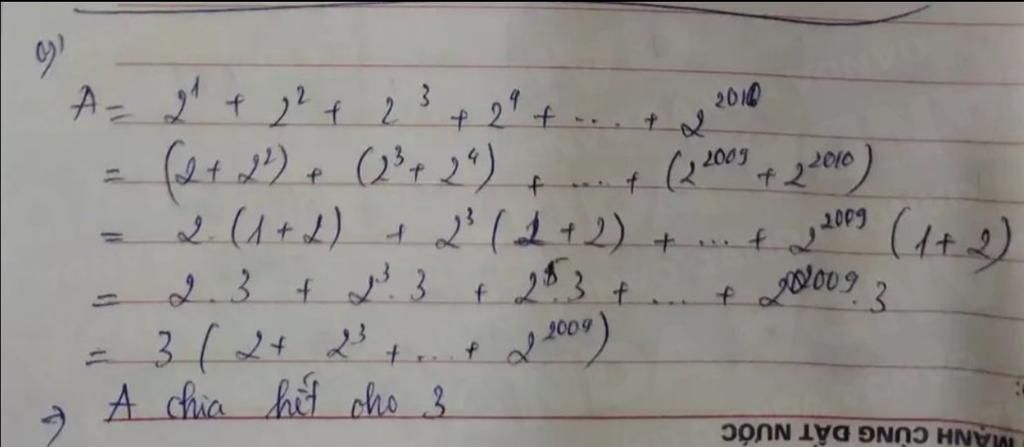 a)
A = 2¹ + 2² + 2³ + 2⁴ + .... + 2²⁰¹⁰
= (2 + 2²) + (2³ + 2⁴) + .... + (2²⁰⁰⁹ + 2²⁰¹⁰)
= 2.(1+2) + 2³(1+2) + ... + 2²⁰⁰⁹(1+2)
= 2.3 + 2³.3 + 2⁵.3 + ... + 2²⁰⁰⁹.3
= 3(2 + 2³ + ... + 2²⁰⁰⁹)
⇒ A chia hết cho 3
MẠNH CÙNG ĐẤT NƯỚC